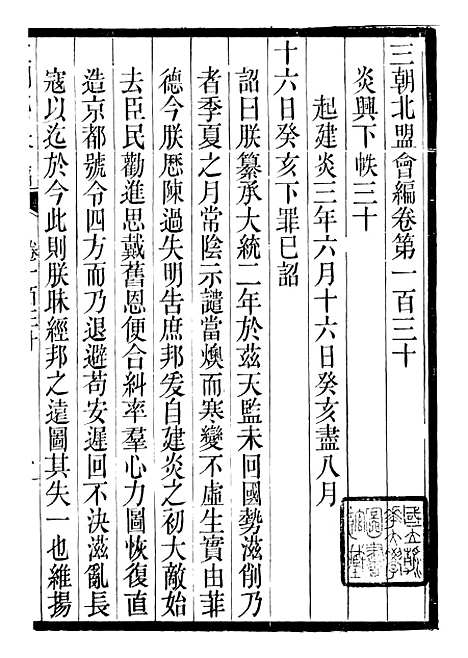 三朝北盟會編卷第一百三十
炎興下帙三十
起建炎三年六月十六日癸亥盡八月
十六日癸亥下罪已詔
詔曰朕纂承大統二年於茲天監未回國勢滋削乃
者季夏之月常陰示譴當燠而寒變不虛生實由菲
德今朕歷陳過失明告庶邦爰自建炎之初大敵始
去臣民勸進思戴舊恩便合糾率羣心力圖恢復直
造京都號令四方而乃退避苟安遲回不決滋亂長
寇以迄於今此則朕昧經邦之遠圖其失一也維揚
卷一百三十